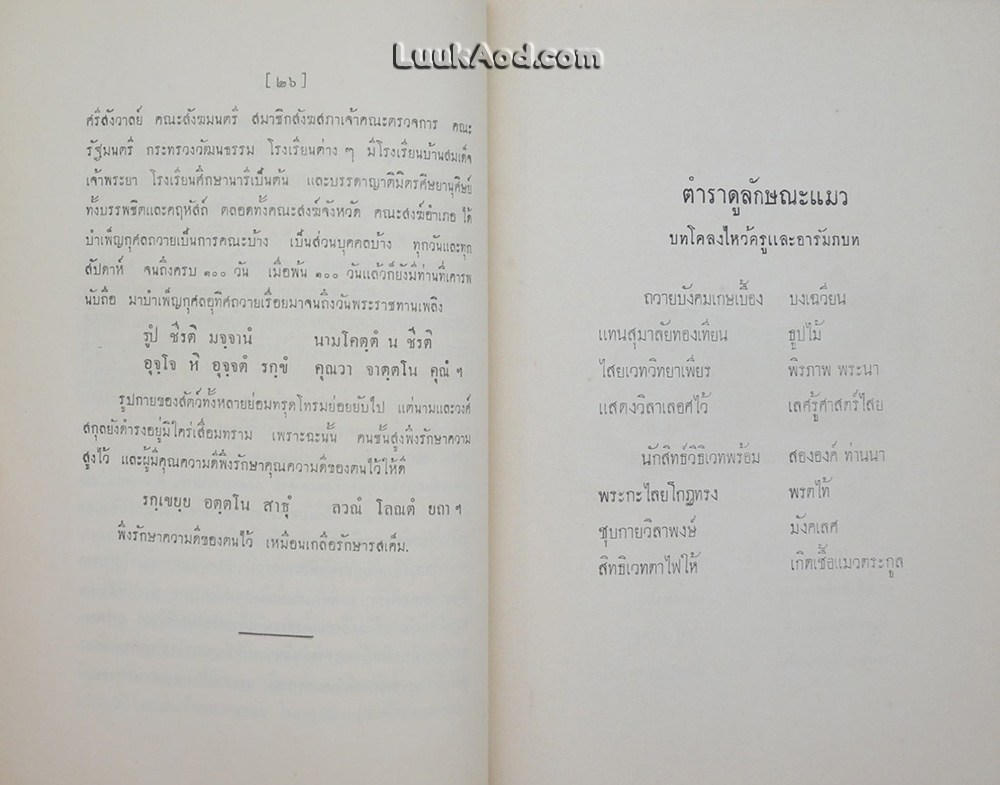 LuukAod.com
[ ๒๖ ]
ศรีสังวาลย์ คณะสังฆมนตรี สมาชิกสังฆสภาเจ้าคณะตรวจการ คณะ
รัฐมนตรี กระทรวงวัฒนธรรม โรงเรียนต่าง ๆ มีโรงเรียนบ้านสมเด็จ
เจ้าพระยา โรงเรียนศึกษานารีเป็นต้น และบรรดาญาติมิตรศิษยานุศิษย์
ทั้งบรรพชิตและคฤหัสถ์ ตลอดทั้งคณะสงฆ์จังหวัด คณะสงฆ์อำเภอ ได้
บำเพ็ญกุศลถวายเป็นการคณะบ้าง เป็นส่วนบุคคลบ้าง ทุกวันและทุก
สัปดาห์ จนถึงครบ ๑๐๐ วัน เมื่อพ้น ๑๐๐ วันแล้วก็ยังมีท่านที่เคารพ
นับถือ มาบำเพ็ญกุศลอุทิศถวายเรื่อยมาจนถึงวันพระราชทานเพลิง
รูปํ ชีรติ มจฺจานํ นามโคตฺตํ น ชีรติ
อุจฺโจ หิ อุจฺจตํ รกฺขํ คุณวา จาตฺตโน คุณํ ฯ
รูปกายของสัตว์ทั้งหลายย่อมทรุดโทรมย่อยยับไป แต่นามและวงศ์
สกุลยังดำรงอยู่มิใคร่เสื่อมทราม เพราะฉะนั้น คนชั้นสูงพึงรักษาความ
สูงไว้ และผู้มีคุณความดีพึงรักษาคุณความดีของตนไว้ให้ดี
รกฺเขยฺย อตฺตโน สาธุํ ลวณํ โลณตํ ยถา ฯ
พึงรักษาความดีของตนไว้ เหมือนเกลือรักษารสเค็ม.
ตำราดูลักษณะแมว
บทโคลงไหว้ครูและอารัมภบท
ถวายบังคมเกษเบื้อง บงเฉวียน
แทนสุมาลัยทองเทียน ธูปไม้
ไสยเวทวิทยาเพียร พิรภาพ พระนา
แสดงวิลาเลอศไว้ เลศรู้ศาสตร์ไสย
นักสิทธ์วิธิเวทพร้อม สององค์ ท่านนา
พระกะไลยโกฏทรง พรตไท้
ชุบกายวิลาพงษ์ มังคเลศ
สิทธิเวทตาไฟให้ เกิดเชื้อแมวตระกูล